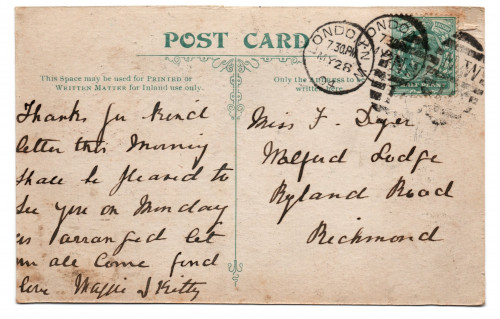 POST CARD
This Space may be used for PRINTED or
WRITTEN MATTER for Inland use only.
Only the Address to be
written here.
LONDON. N.W
7.30PM
MY 28
LONDON
HALFPENNY
Thanks for kind
letter this Morning
shall be pleased to
See you on Monday
as arranged let
em all come fond
love Maggie & Kitty
Miss F. Dyer
Walfud Lodge
Ryland Road
Richmond